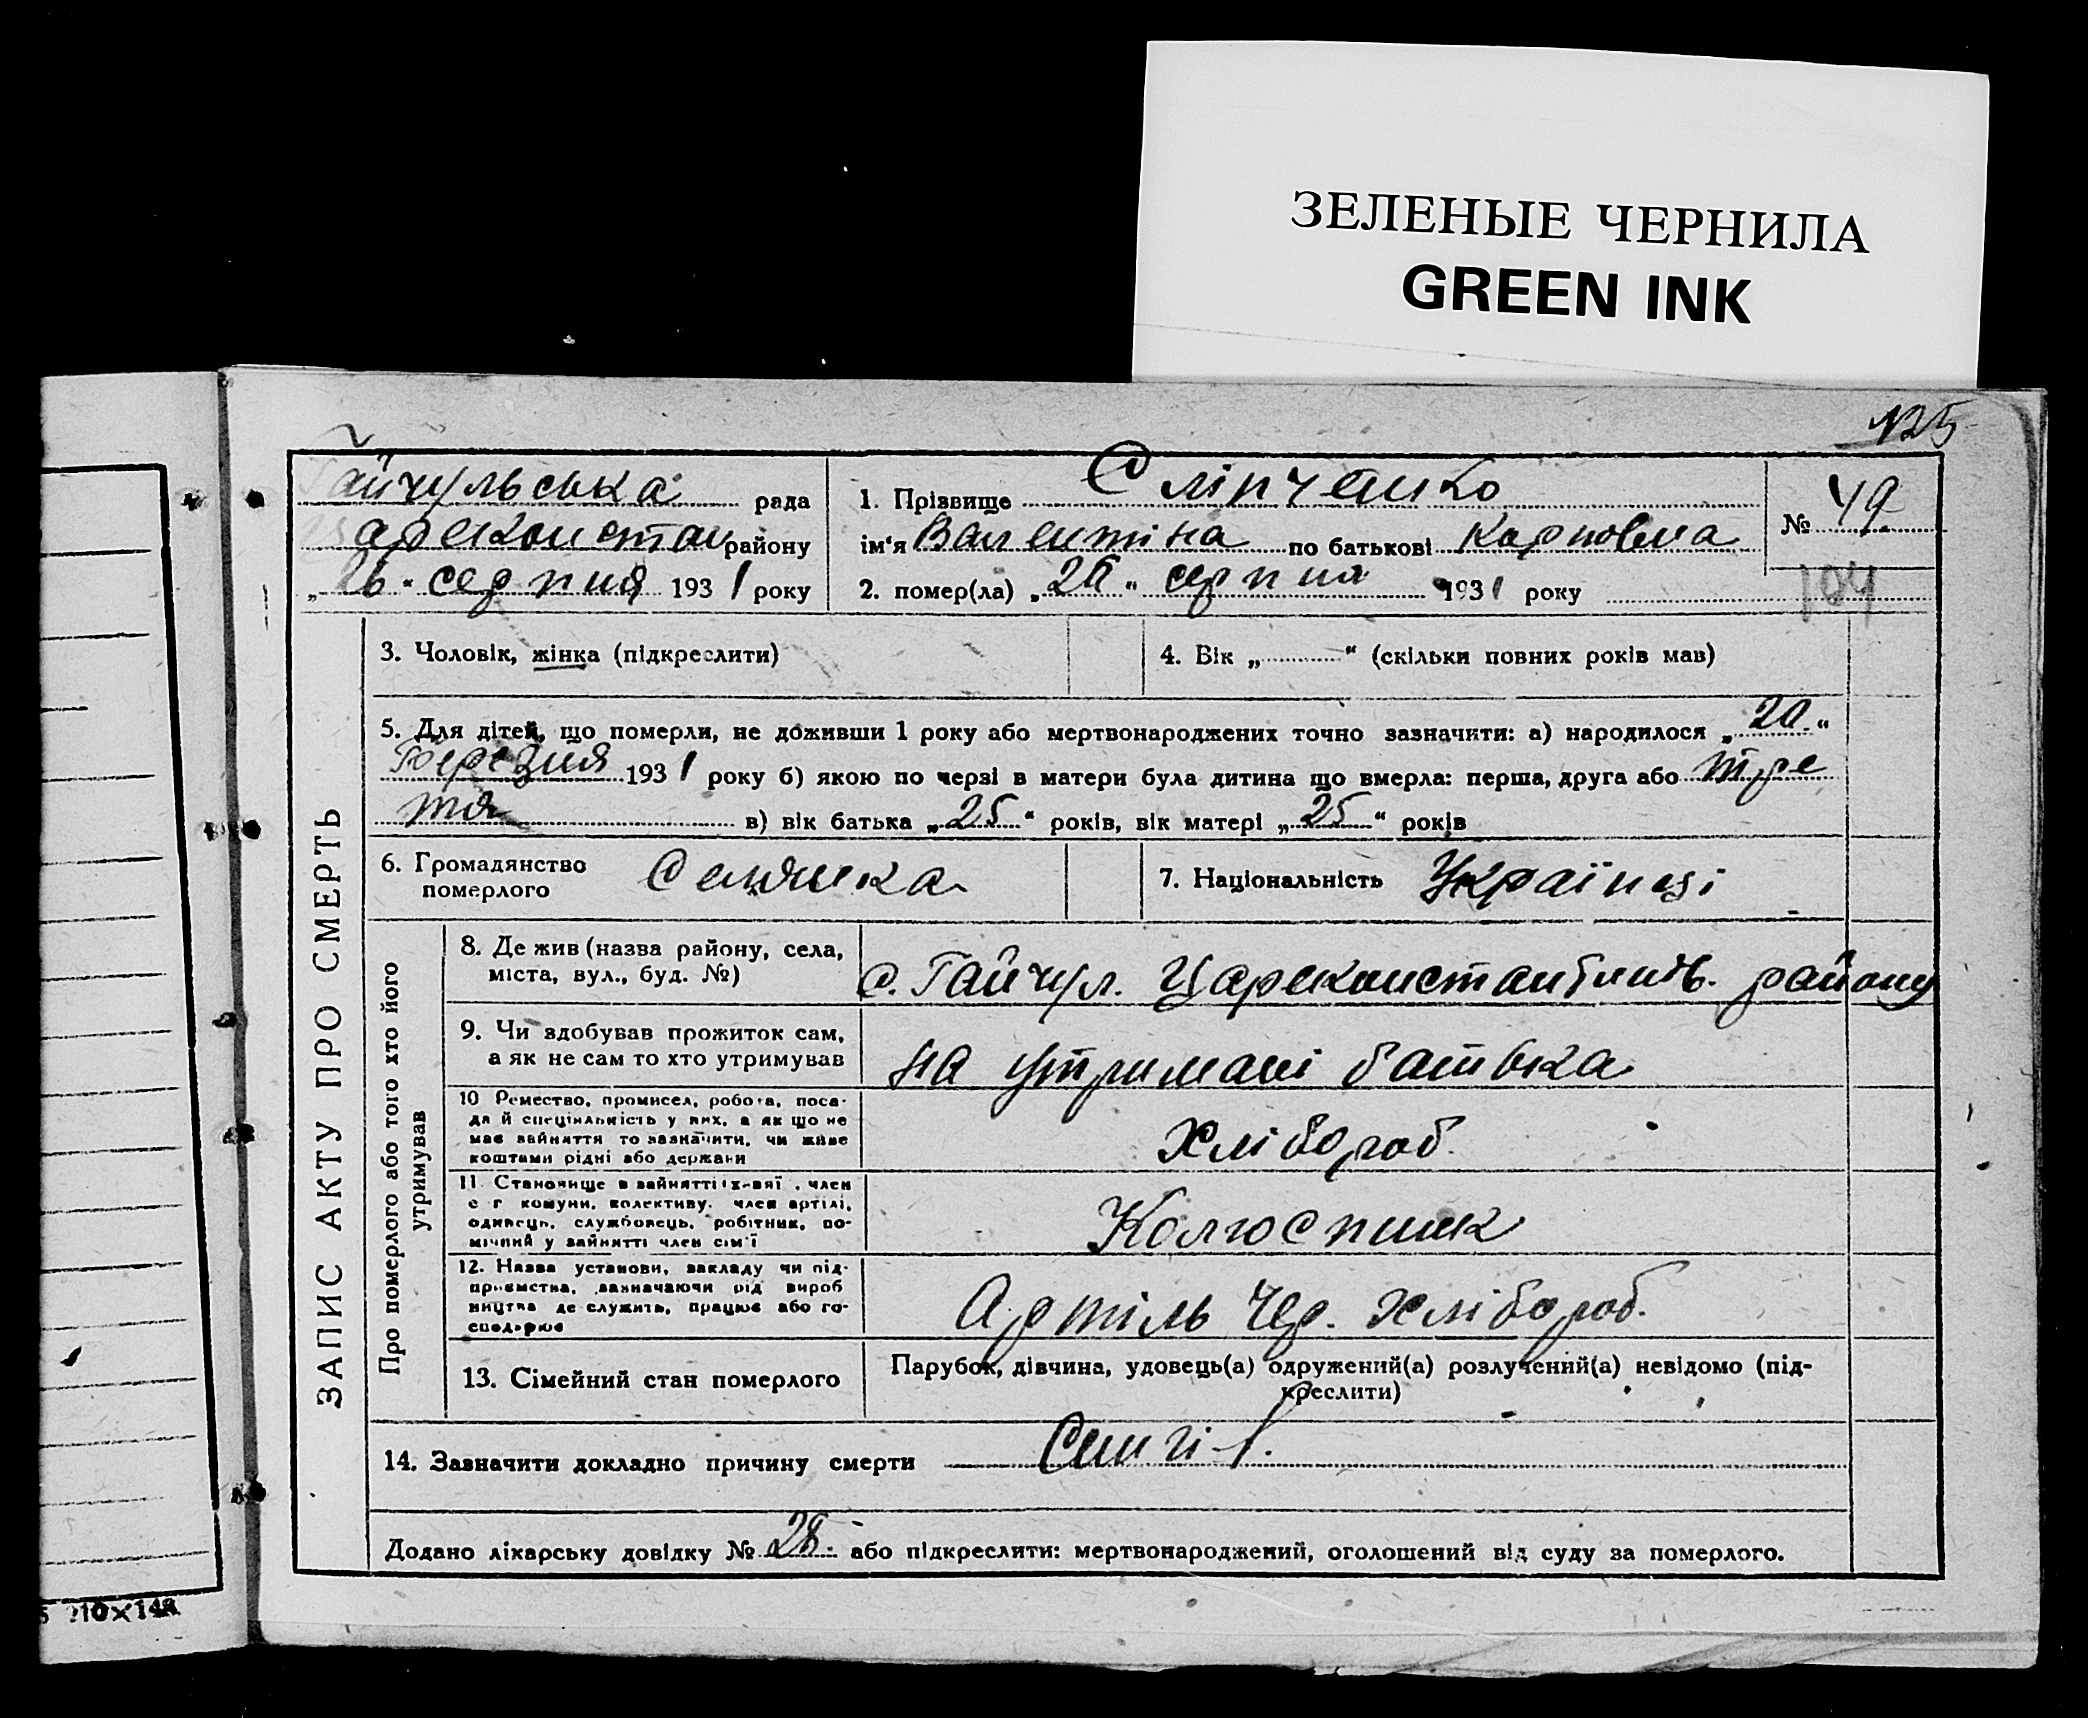 ЗЕЛЕНЫЕ ЧЕРНИЛА
GREEN INK
125
Гайчульська рада
Цареконстан району
„26" серпня 1931 року
1. Прізвище Сліпченко
ім'я Валентіна по батькові Карповна
2. помер(ла) „26" серпня 1931 року
№ 49
104
ЗАПИС АКТУ ПРО СМЕРТЬ
3. Чоловік, жінка (підкреслити)
4. Вік „............" (скільки повних років мав)
5. Для дітей, що померли, не доживши 1 року або мертвонароджених точно зазначити: а) народилося „20"
березня 1931 року б) якою по черзі в матери була дитина що вмерла: перша, друга або тре
тя в) вік батька „25" років, вік матері „25" років
6. Громадянство
померлого Селянка
7. Національність Українці
Про померлого або того хто його
утримував
8. Де жив (назва району, села,
міста, вул., буд. №)
с. Гайчул. Царекон­стантинів. району
9. Чи здобував прожиток сам,
а як не сам то хто утримував
на утримані батька
10 Ремество, промисел, робота, поса-
да й спеціяльність у них, а як що не
має зайняття то зазначити, чи живе
коштами рідні або держави
Хлібороб.
11 Становище в зайнятті: хазяї, член
с г комуни, колективу, член артілі,
одинець, службовець, робітник, по-
мічний у зайнятті член сім'ї
Колгоспник
12. Назва установи, закладу чи під-
приємства, зазначаючи рід вироб
ництва де служить, працює або го-
сподарює
Артіль Чер. Хлібороб.
13. Сімейний стан померлого
Парубок, дівчина, удовець(а) одружений(а) розлучений(а) невідомо (під-
креслити)
14. Зазначити докладно причину смерти
Додано лікарську довідку № 28. або підкреслити: мертвонароджений, оголошений від суду за померлого.
210×148